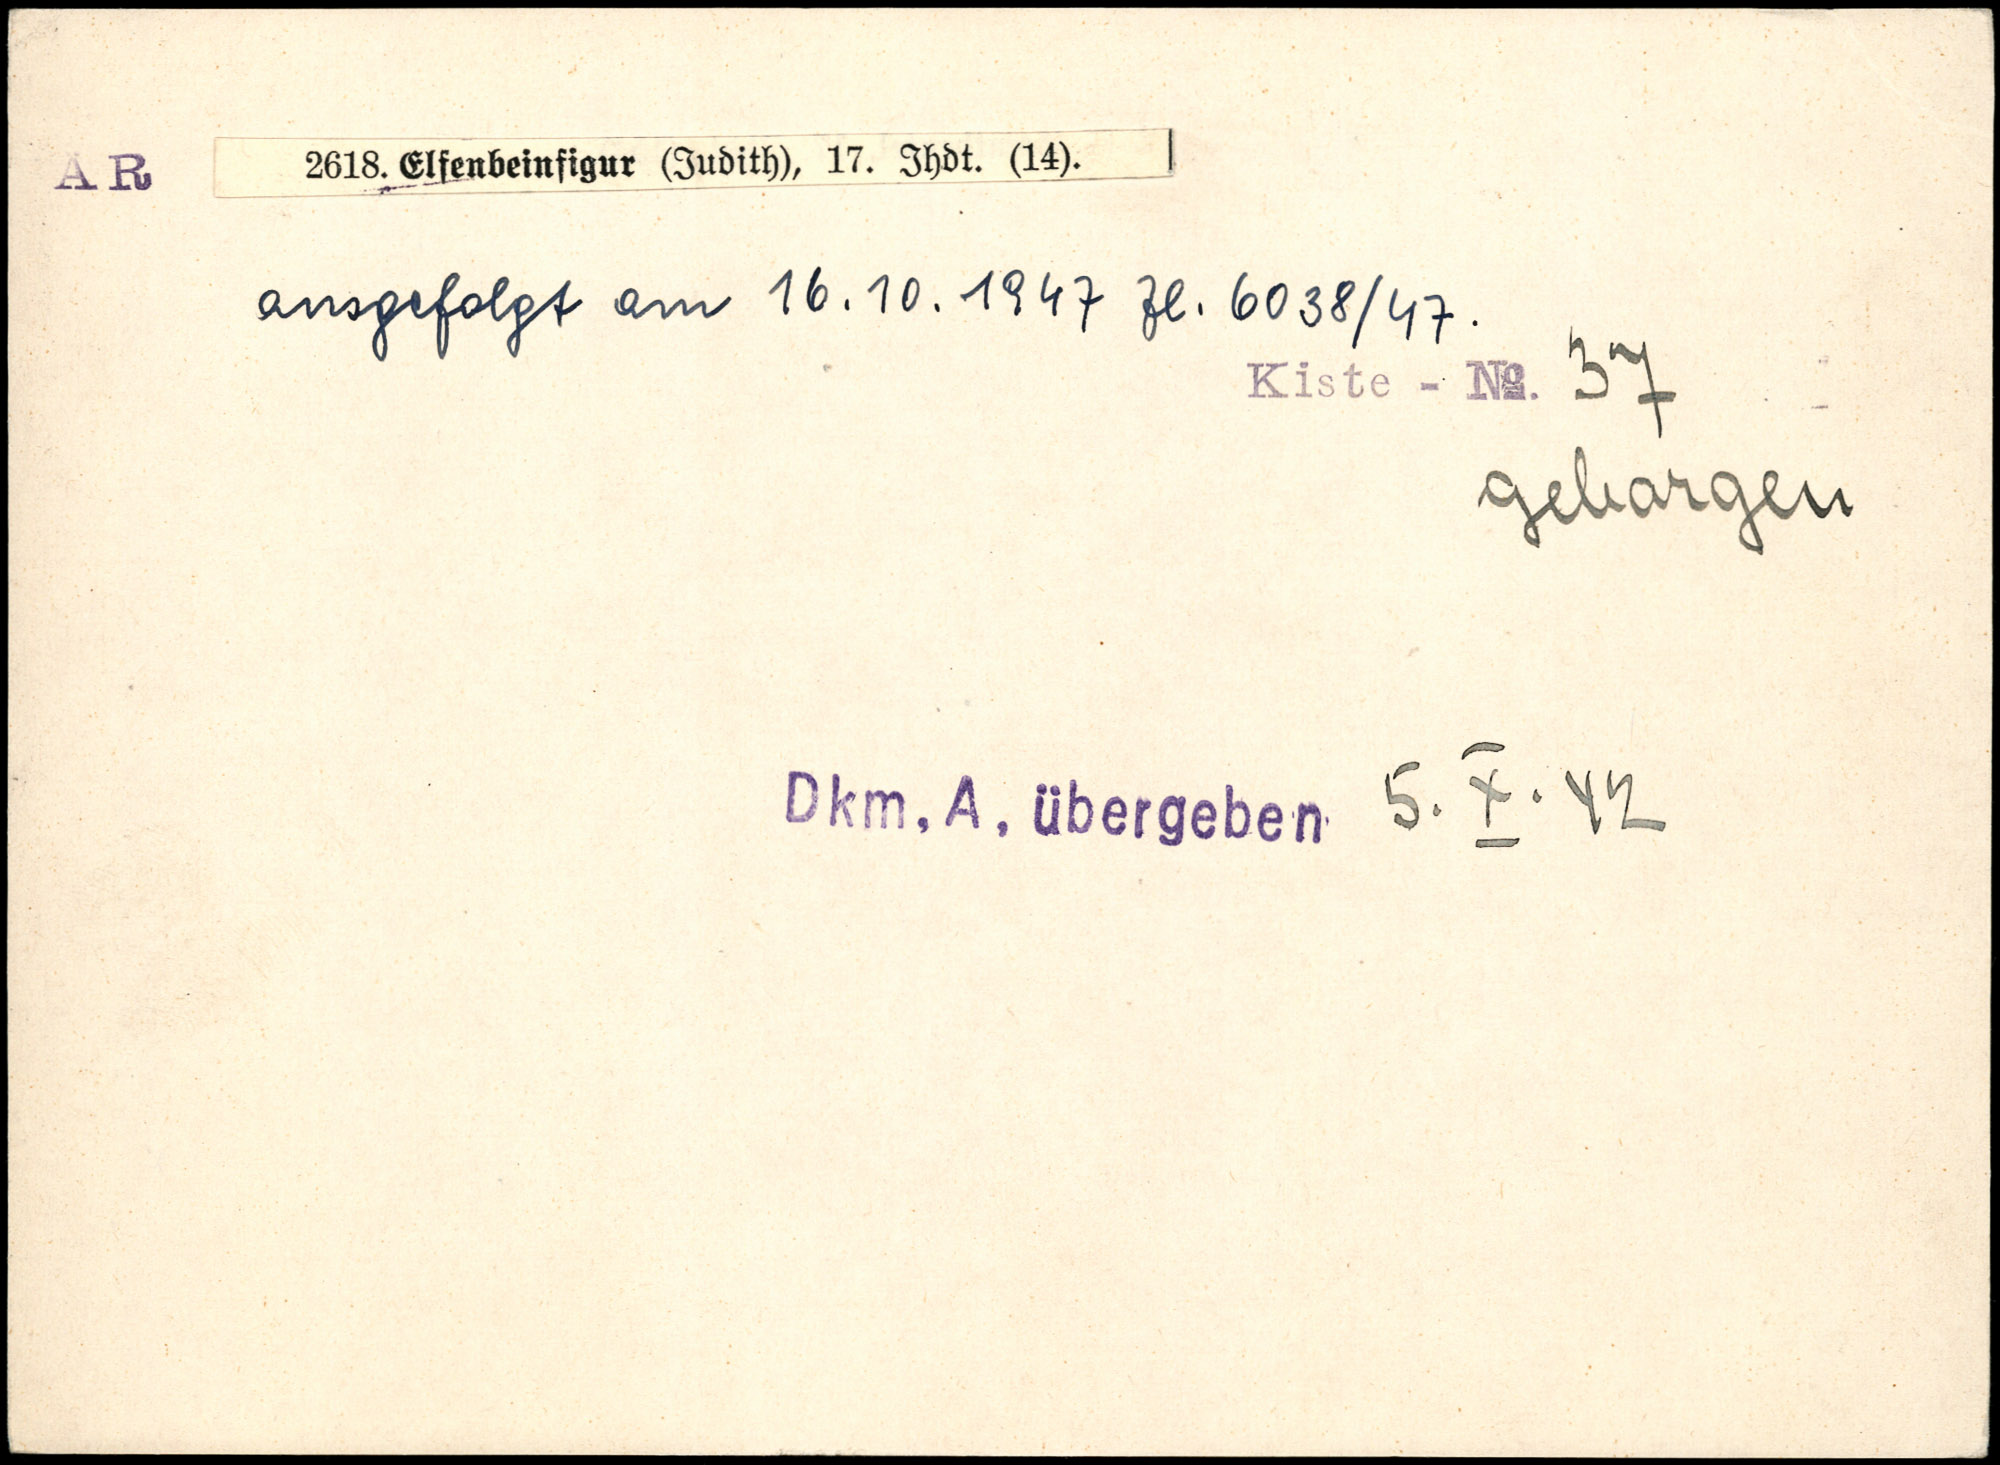 AR 2618. Elfenbeinfigur (Judith), 17. Jhdt. (14).
ausgefolgt am 16.10.1947 Zl. 6038/47.
Kiste - No. 37
geborgen
Dkm. A. übergeben 5. X. 42